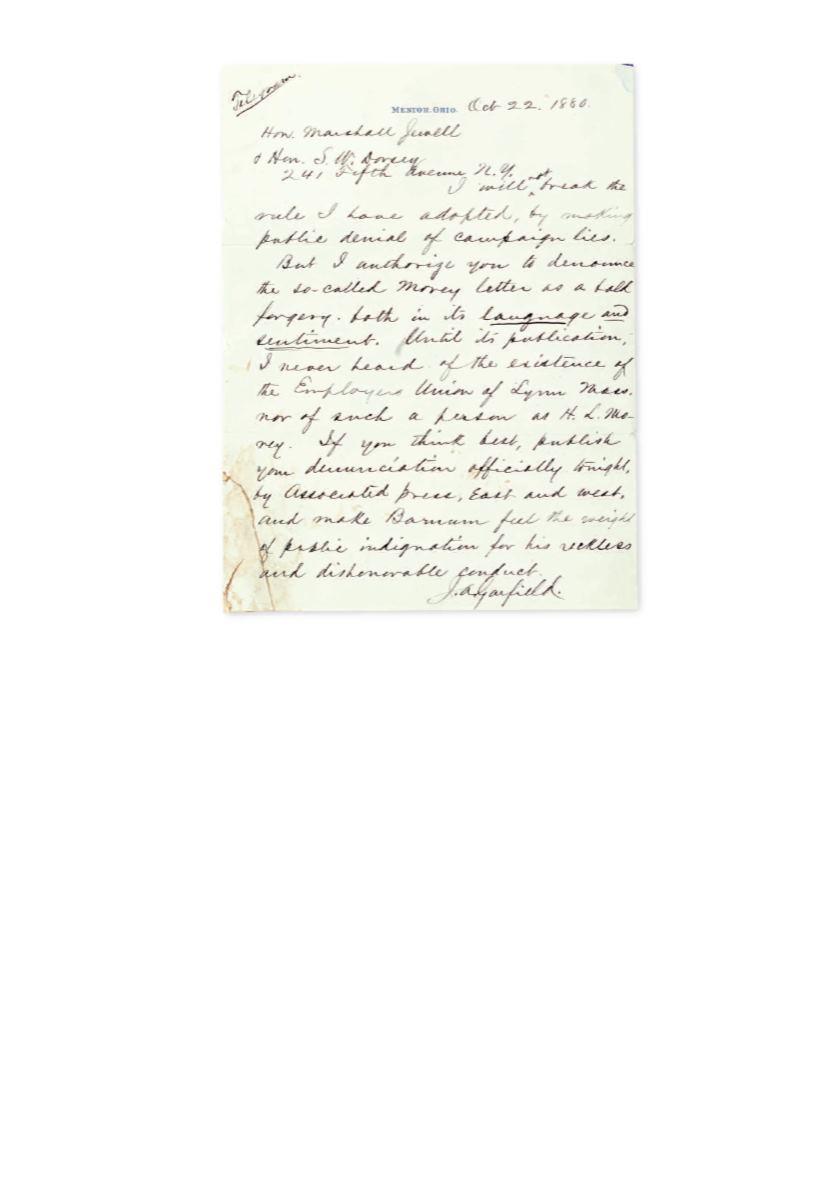 Telegram.
MENTOR, OHIO. Oct 22. 1880.
Hon. Marshall Jewell
& Hon. S. W. Dorsey
241 Fifth Avenue N.Y.
I will not break the
rule I have adopted, by making
public denial of campaign lies.
But I authorize you to denounce
the so-called Morey letter as a bald
forgery. both in its language and
sentiment. Until its publication,
I never heard of the existence of
the Employers Union of Lynn Mass.
nor of such a person as H. L. Mo-
rey. If you think best, publish
your denunciation officially tonight,
by Associated Press, East and West,
and make Barnum feel the weight
of public indignation for his reckless
and dishonorable conduct.
J. A. Garfield.